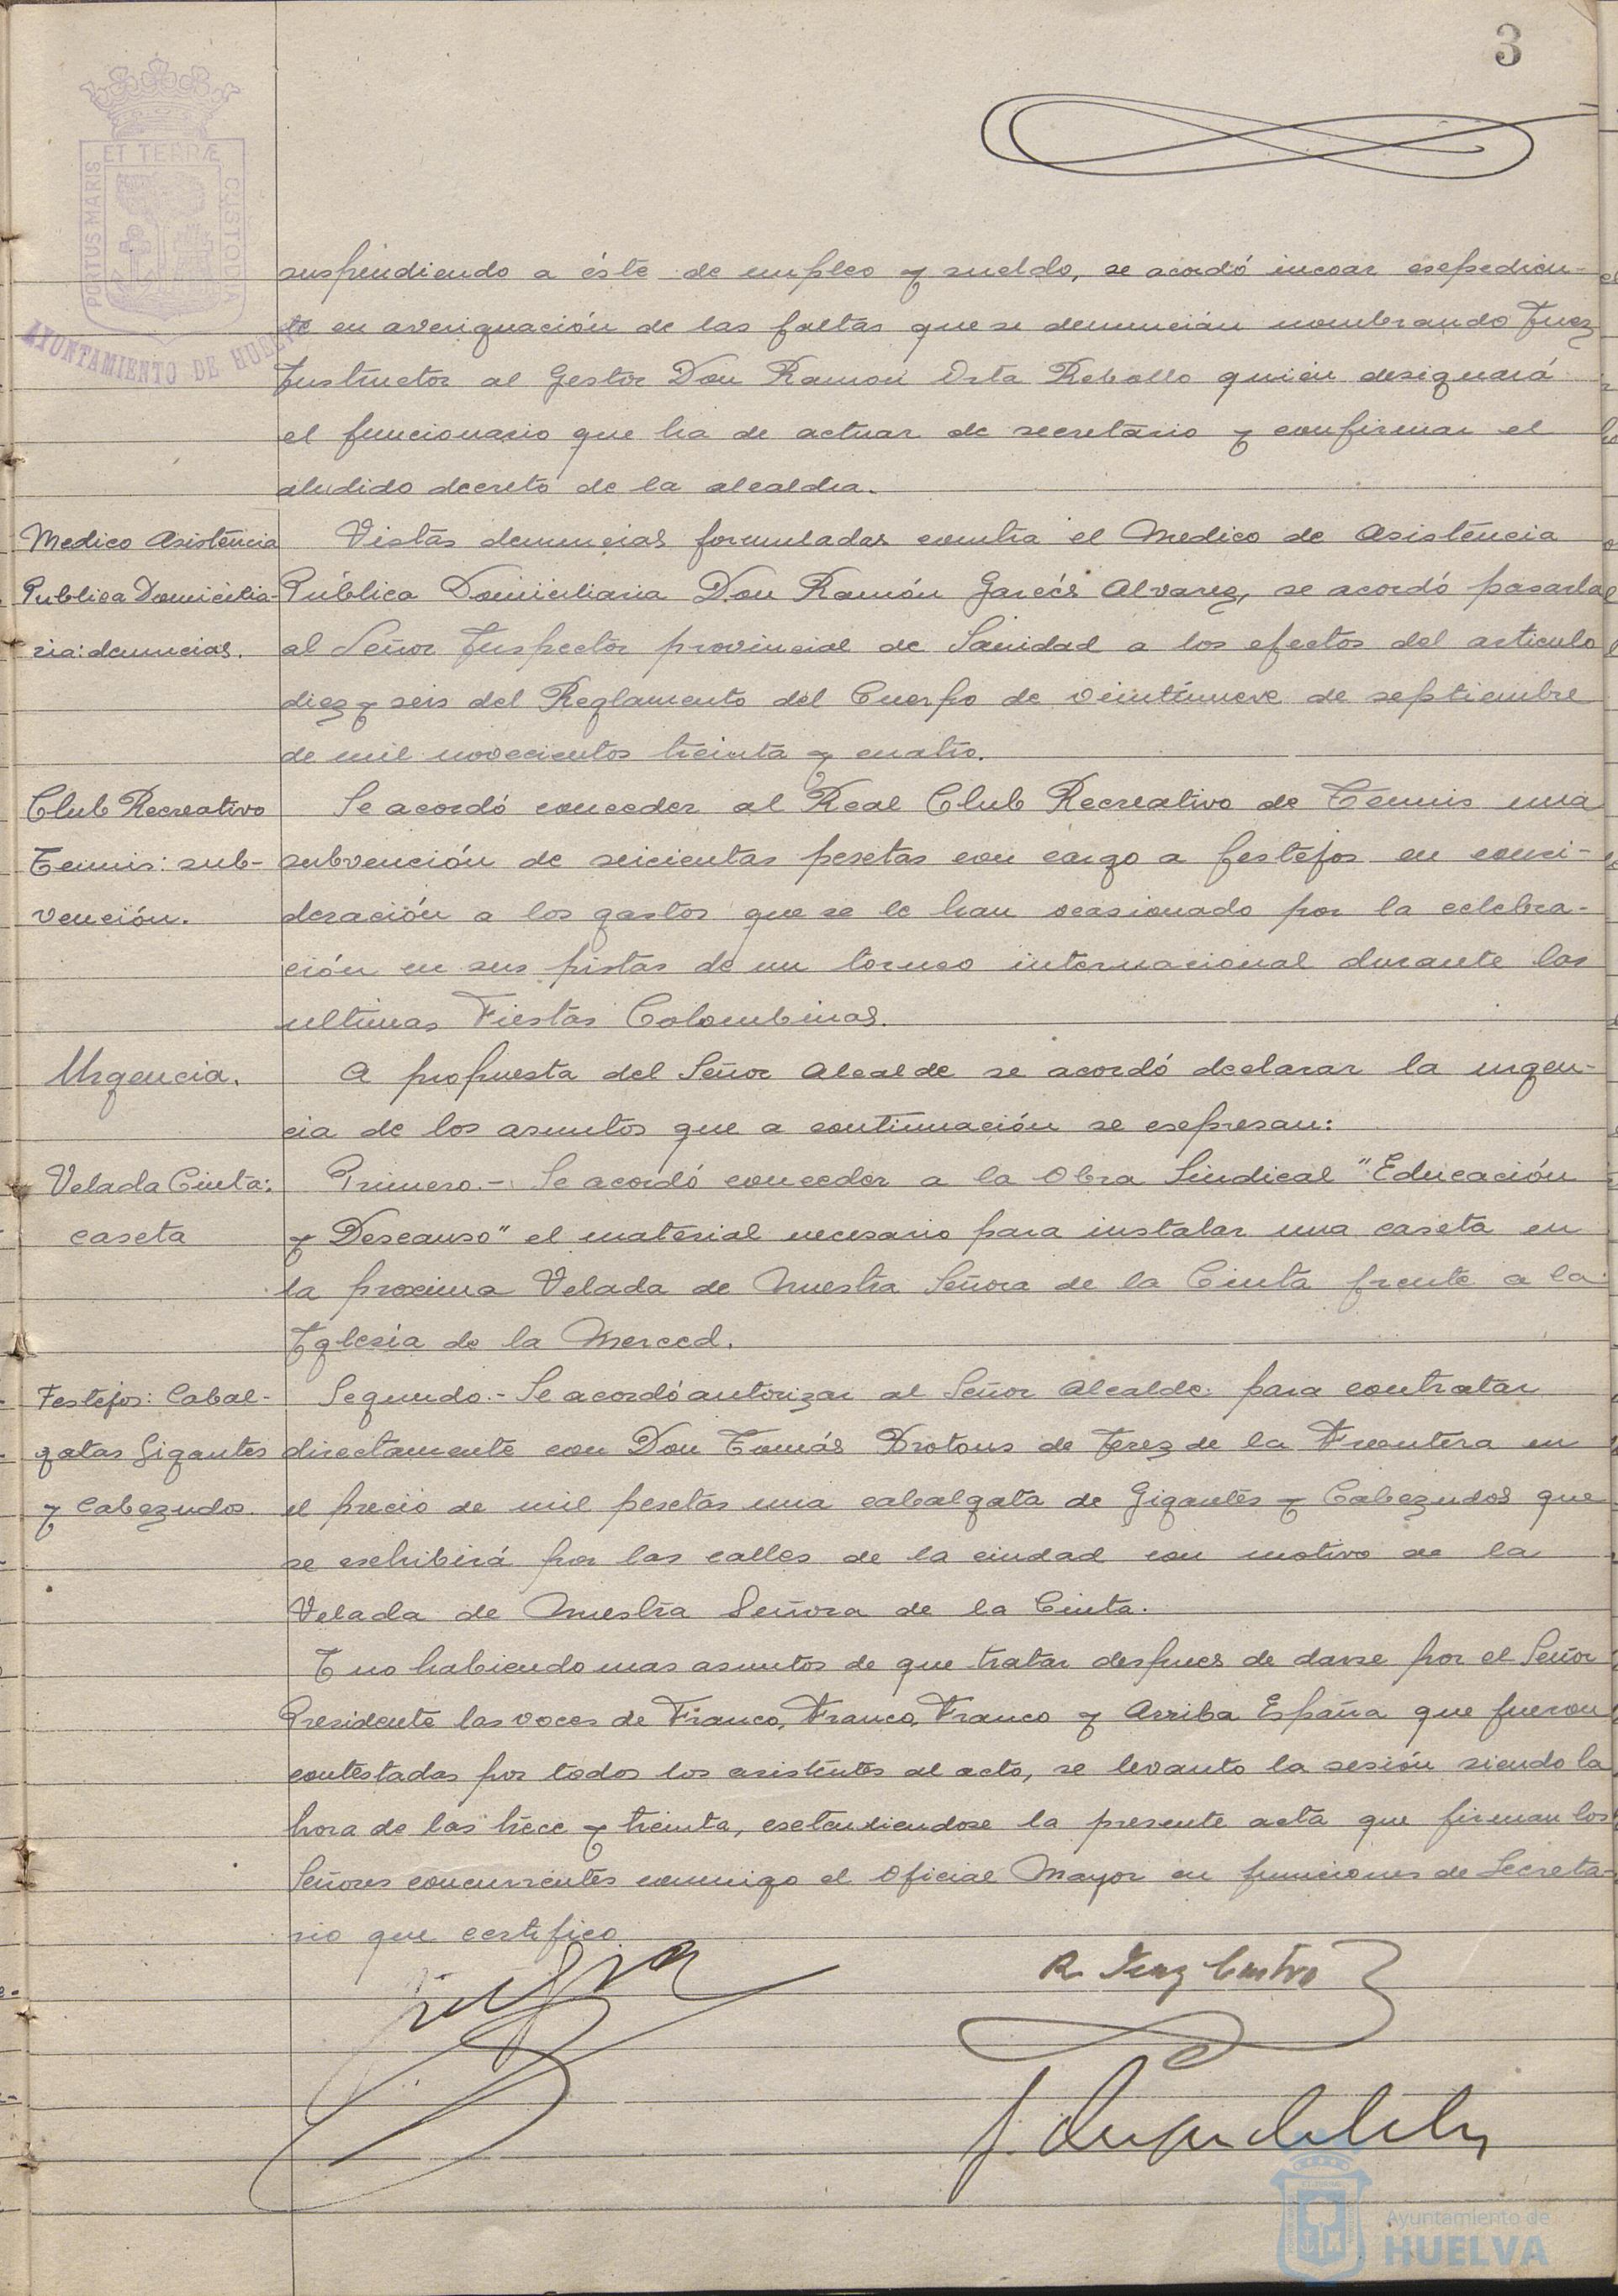 3
ET TERRÆ
PORTUS MARIS
CUSTODIA
AYUNTAMIENTO DE HUELVA
suspendiendo a éste de empleo y sueldo, se acordó incoar expedien-
te en averiguación de las faltas que se denuncian nombrando Juez
Instructor al Gestor Don Ramon Orta Rebollo quien designará
el funcionario que ha de actuar de secretario y confirmar el
aludido decreto de la alcaldia.
Medico Asistencia
Publica Domicilia-
ria: denuncias.
Vistas denuncias formuladas contra el Medico de Asistencia
Pública Domiciliaria Don Ramón Garcés Alvarez, se acordó pasarlas
al Señor Inspector provincial de Sanidad a los efectos del articulo
diez y seis del Reglamento del Cuerpo de veintinueve de septiembre
de mil novecientos treinta y cuatro.
Club Recreativo
Tennis: sub-
vención.
Se acordó conceder al Real Club Recreativo de Tennis una
subvención de seicientas pesetas con cargo a festejos en consi-
deración a los gastos que se le han ocasionado por la celebra-
ción en sus pistas de un torneo internacional durante las
ultimas Fiestas Colombinas.
Urgencia.
A propuesta del Señor Alcalde se acordó declarar la urgen-
cia de los asuntos que a continuación se expresan:
Velada Cinta:
caseta
Primero.- Se acordó conceder a la Obra Sindical "Educación
y Descanso" el material necesario para instalar una caseta en
la proxima Velada de Nuestra Señora de la Cinta frente a la
Iglesia de la Merced.
Festejos: Cabal-
gatas Gigantes
y Cabezudos.
Segundo.- Se acordó autorizar al Señor Alcalde para contratar
directamente con Don Tomás Protons de Jerez de la Frontera en
el precio de mil pesetas una cabalgata de Gigantes y Cabezudos que
se exhibirá por las calles de la ciudad con motivo de la
Velada de Nuestra Señora de la Cinta.
Y no habiendo mas asuntos de que tratar despues de darse por el Señor
Presidente las voces de Franco, Franco, Franco y Arriba España que fueron
contestadas por todos los asistentes al acto, se levanto la sesión siendo la
hora de las trece y treinta, extendiendose la presente acta que firman los
Señores concurrentes conmigo el Oficial Mayor en funciones de Secreta-
rio que certifico.
Ayuntamiento de
HUELVA